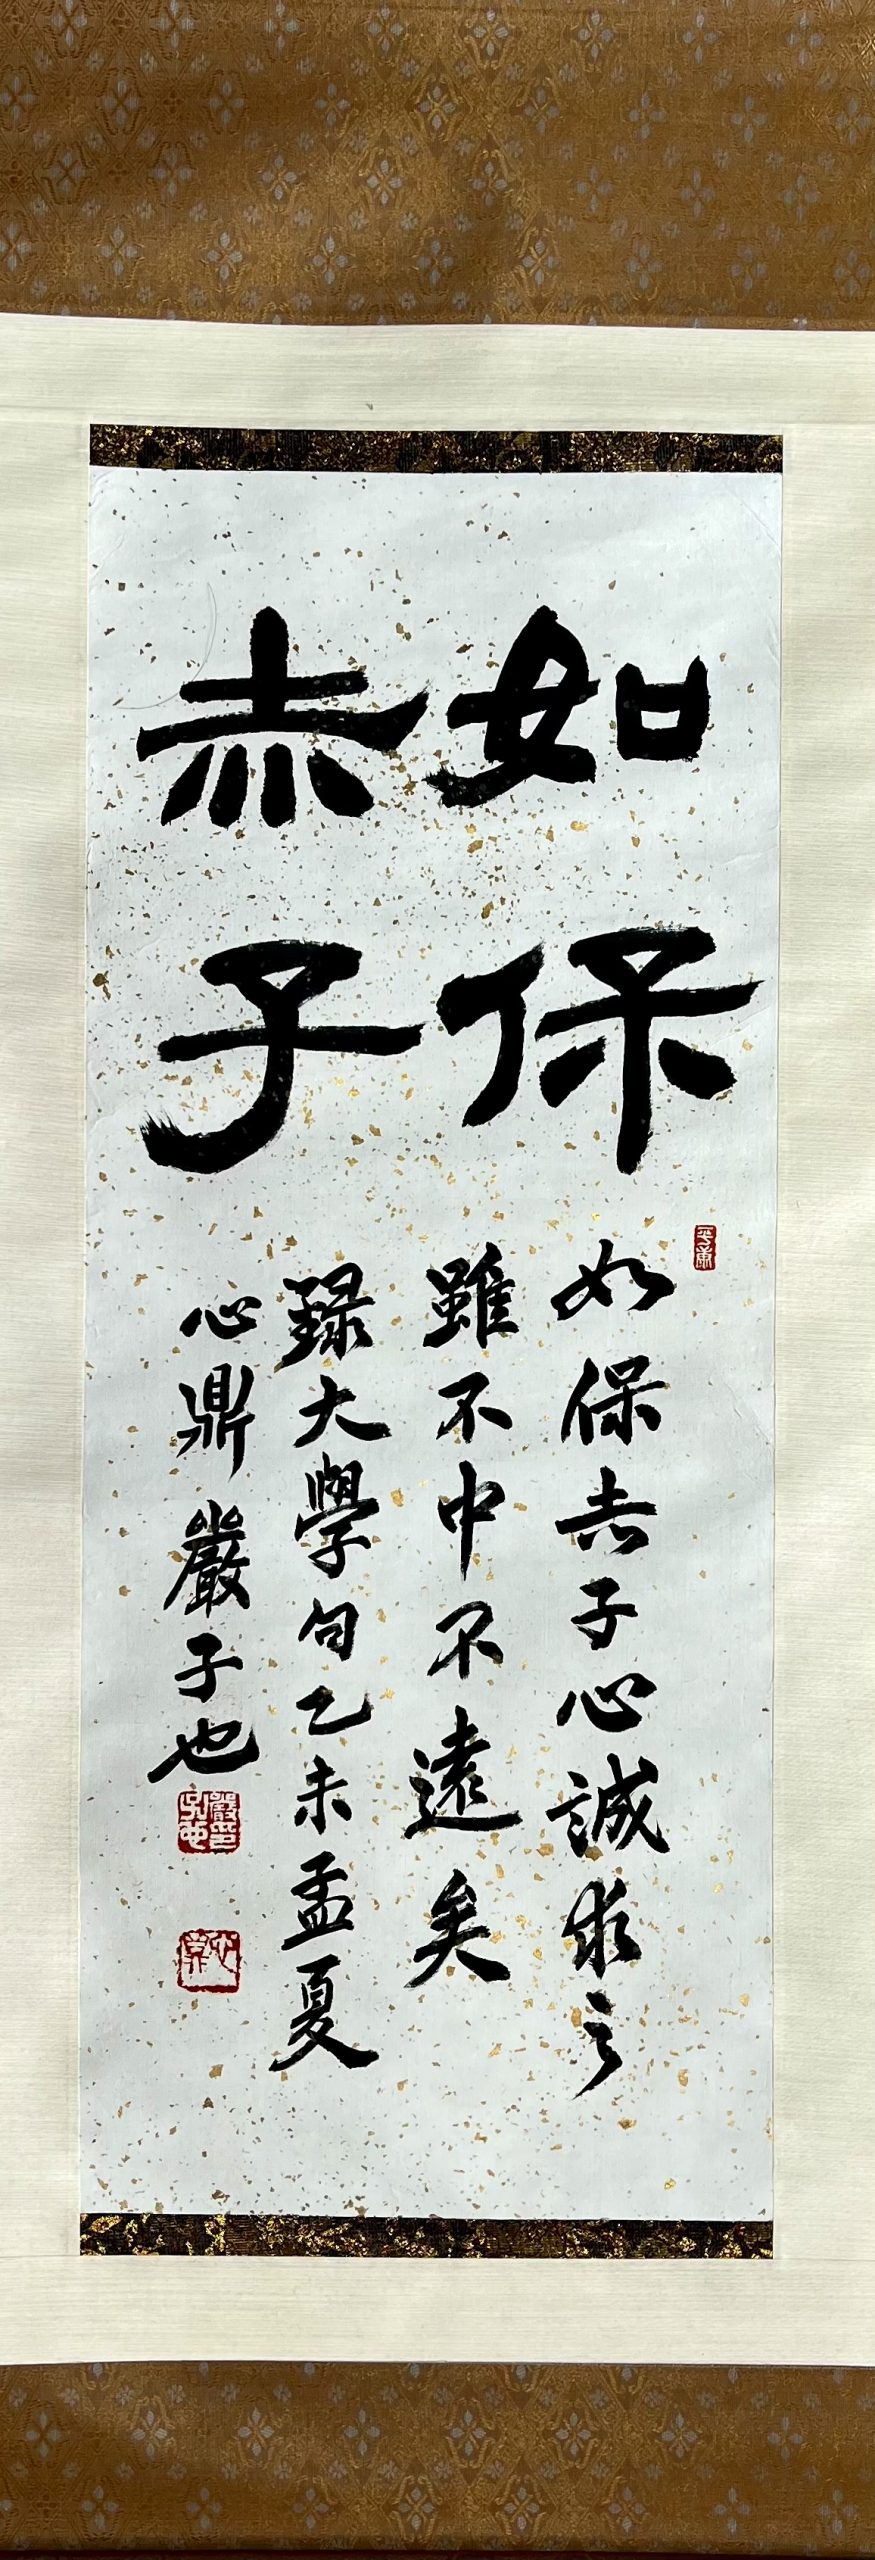 如保
赤子
如保赤子心誠求之
雖不中不遠矣
録大學句乙未孟夏
心鼎嚴子也